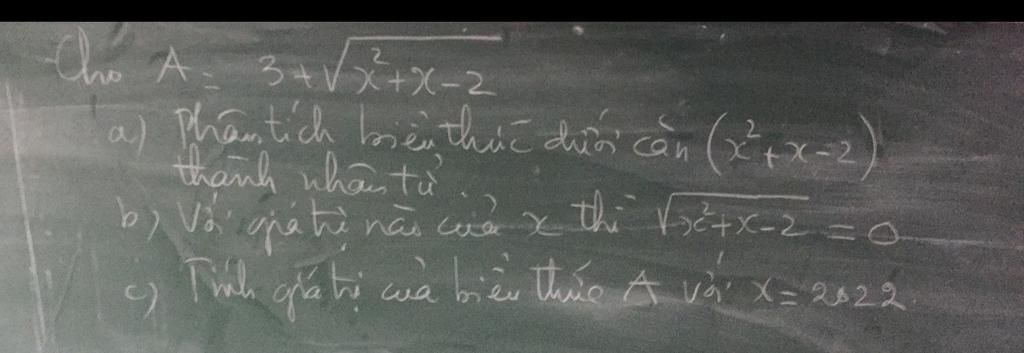 Cho A = 3 + √(x² + x - 2)
a) Phân tích biểu thức dưới căn (x² + x - 2)
thành nhân tử.
b) Với giá trị nào của x thì √(x² + x - 2) = 0
c) Tính giá trị của biểu thức A với x = 2022.